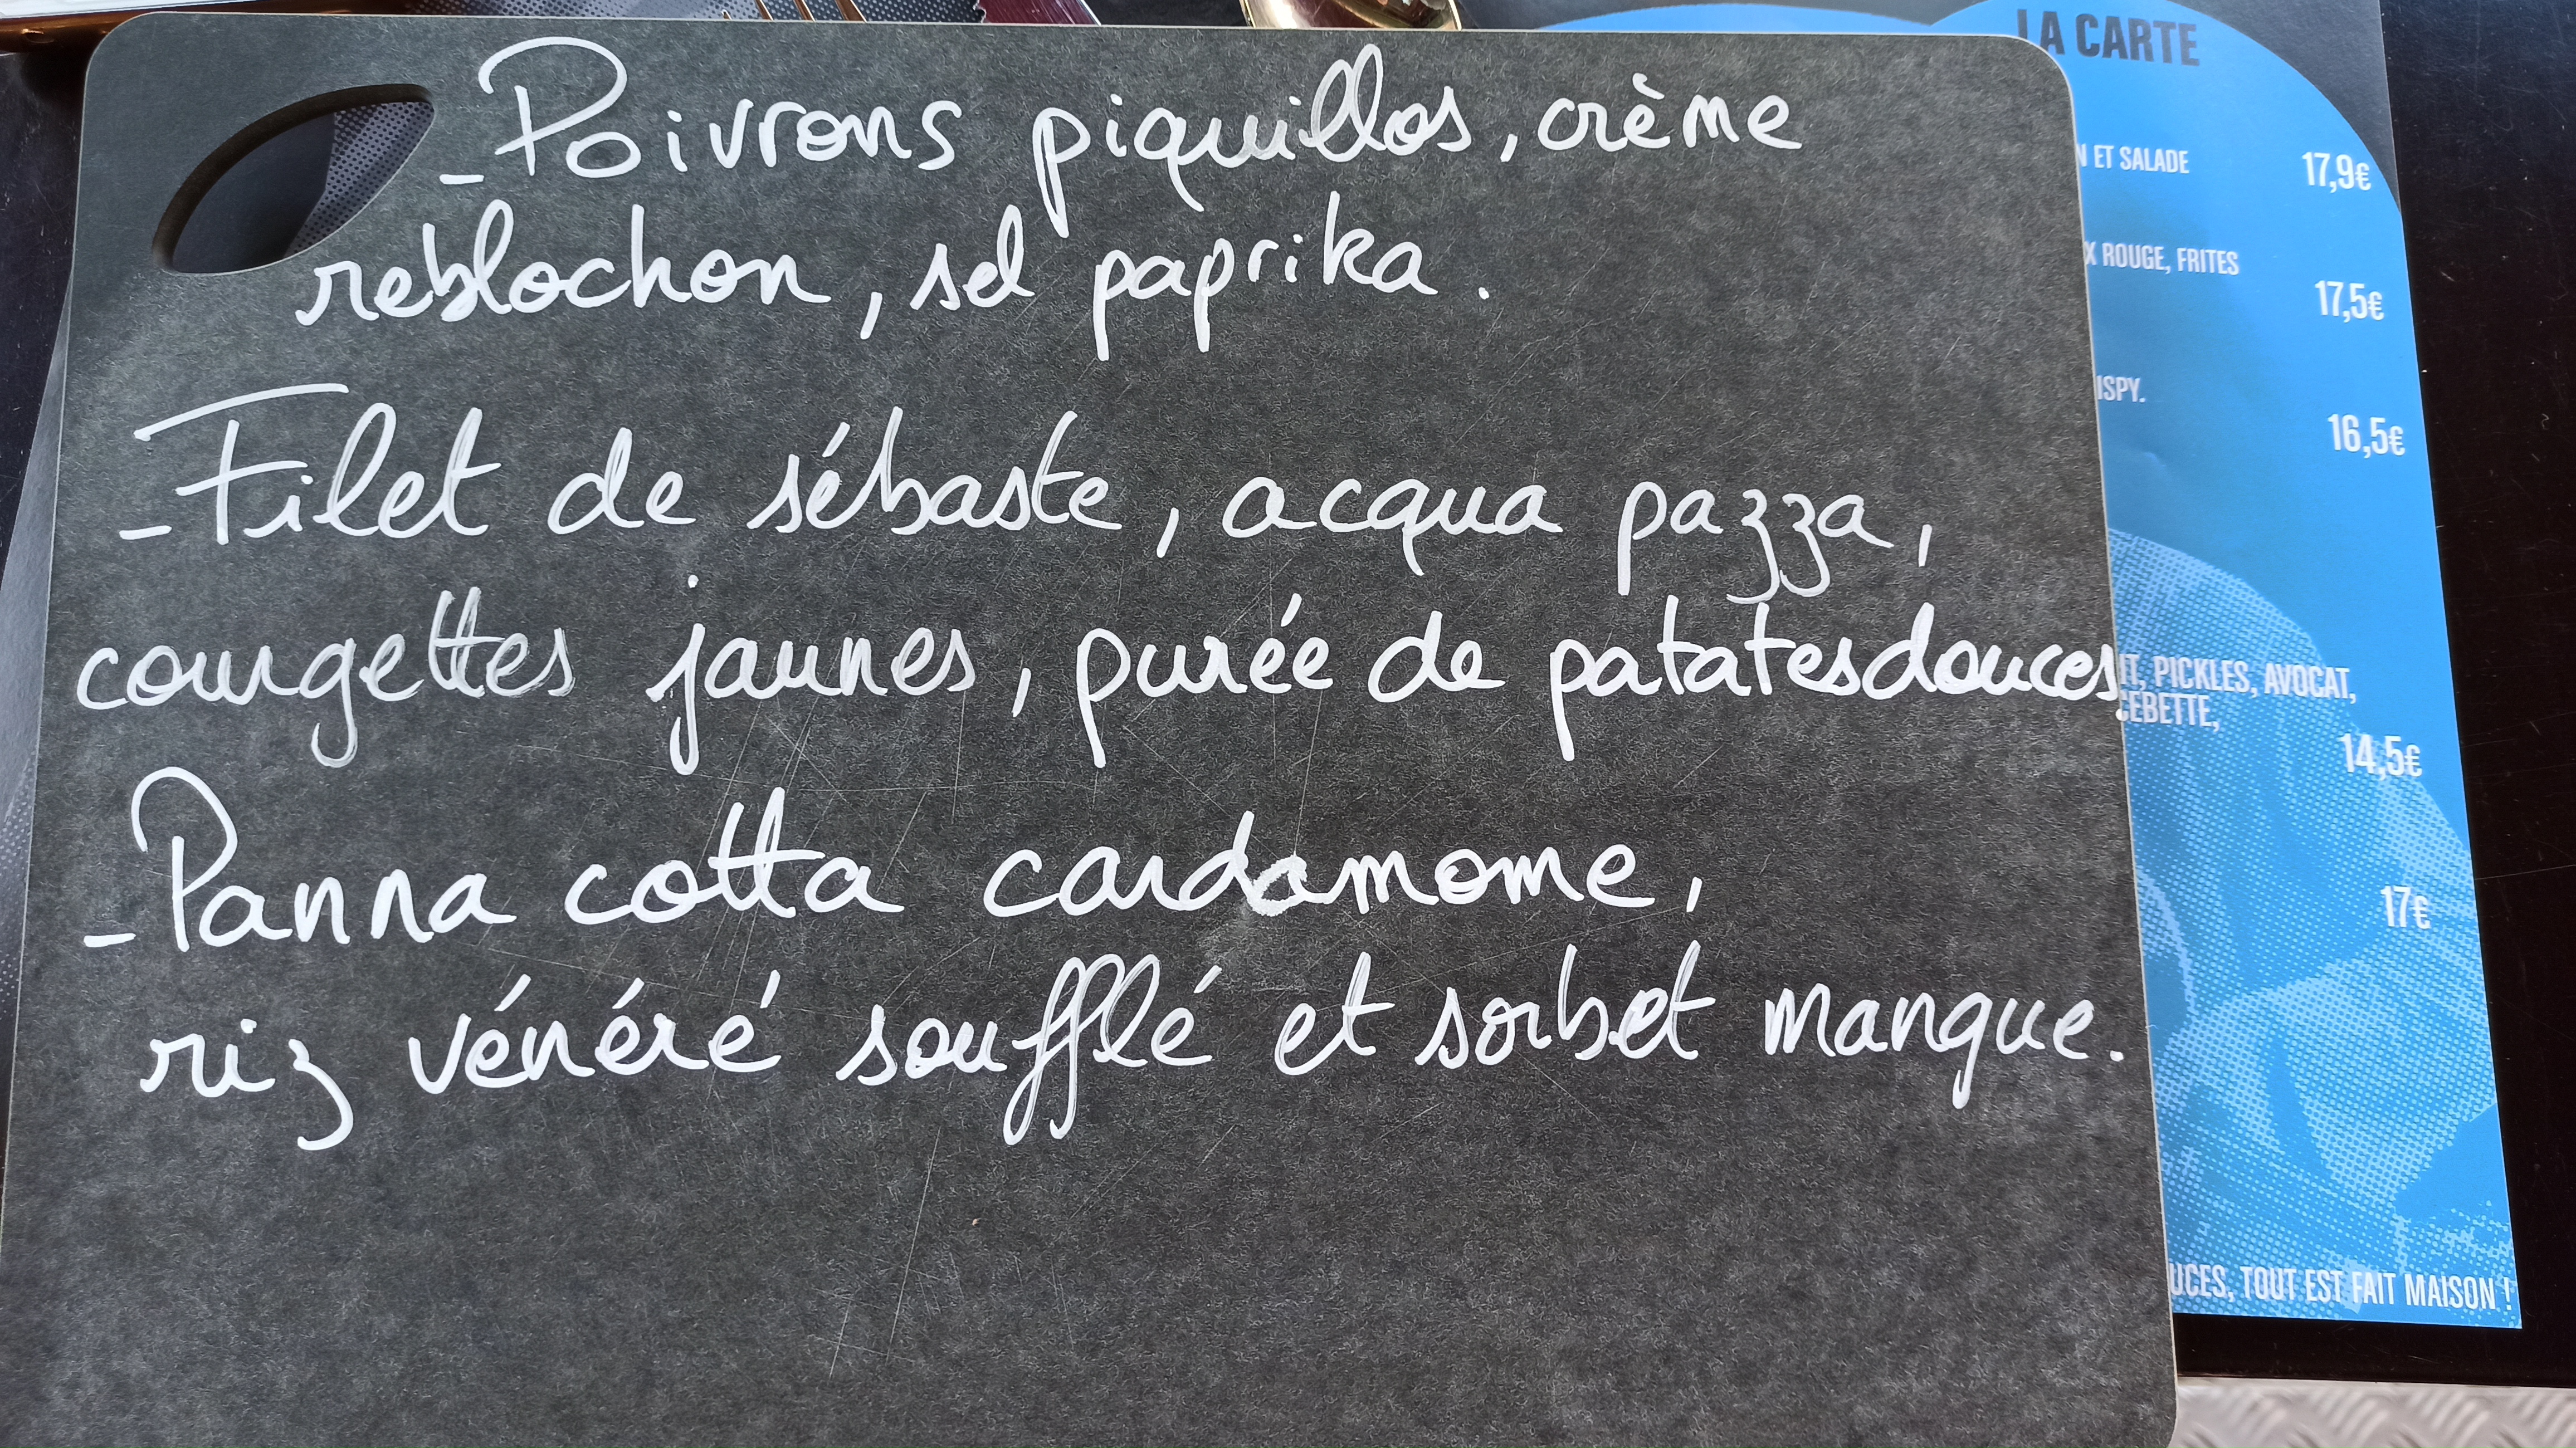 - Poivrons piquillos, crème
reblochon, sel paprika.
- Filet de sébaste, acqua pazza,
courgettes jaunes, purée de patates douces,
- Panna cotta cardamome,
riz vénéré soufflé et sorbet mangue.
LA CARTE
N ET SALADE
17,9€
X ROUGE, FRITES
17,5€
ISPY.
16,5€
IT, PICKLES, AVOCAT,
CEBETTE,
14,5€
17€
UCES, TOUT EST FAIT MAISON !